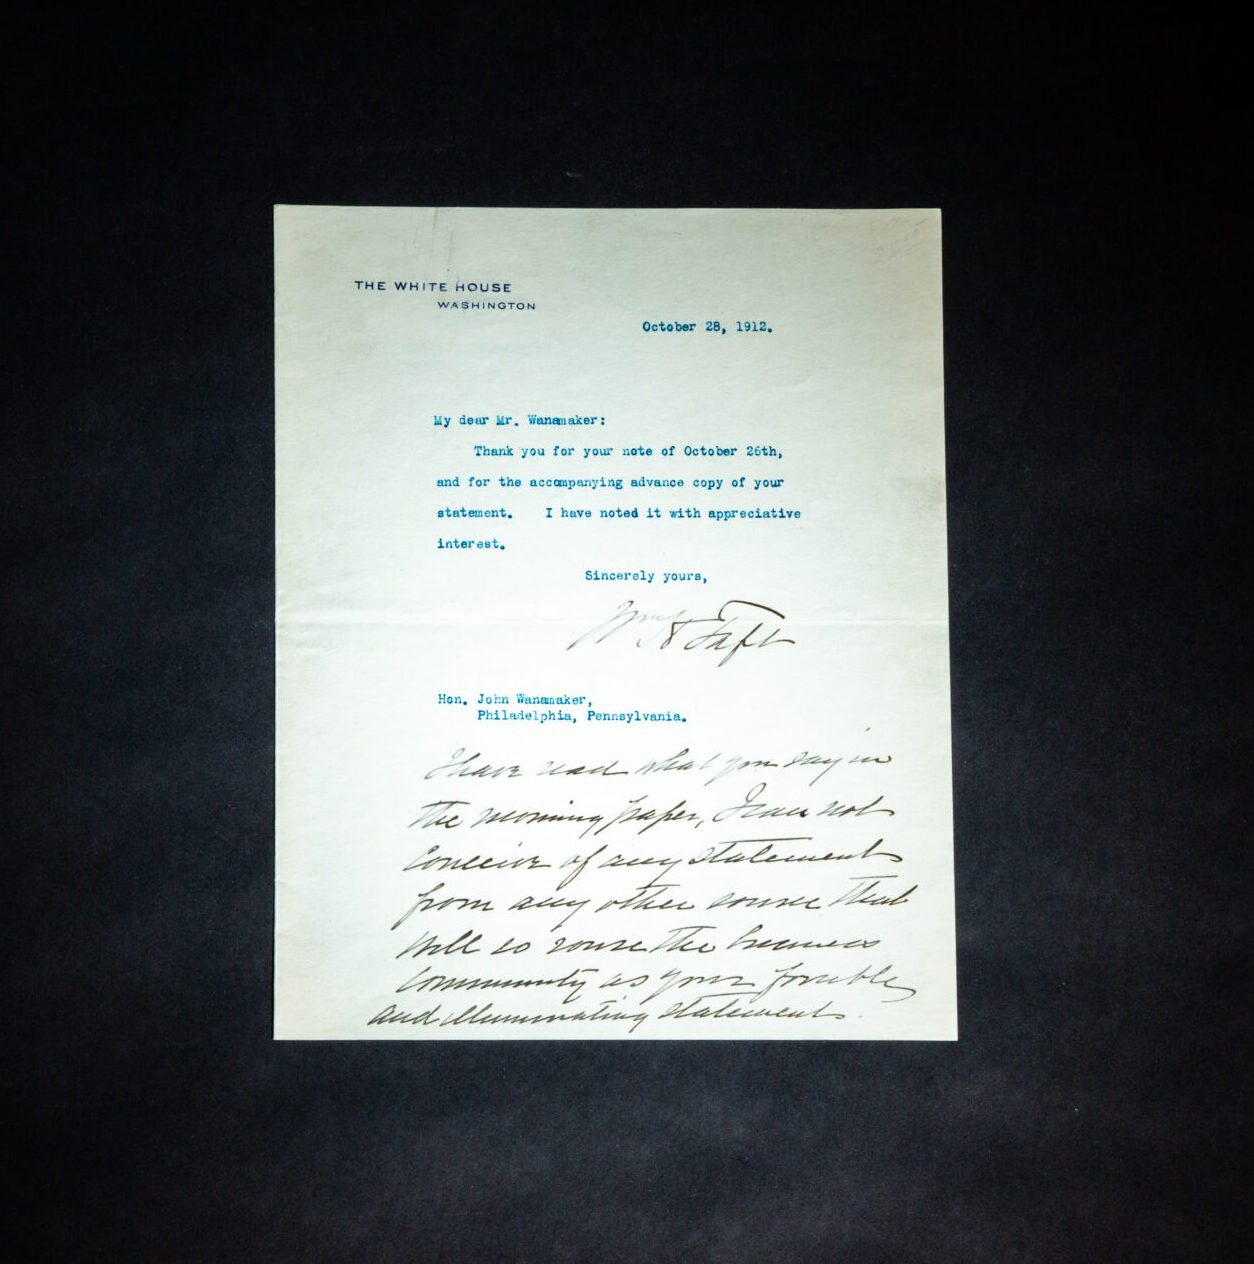 THE WHITE HOUSE
WASHINGTON
October 28, 1912.
My dear Mr. Wanamaker:
Thank you for your note of October 26th,
and for the accompanying advance copy of your
statement. I have noted it with appreciative
interest.
Sincerely yours,
Wm H Taft
Hon. John Wanamaker,
Philadelphia, Pennsylvania.
I have read what you say in
the morning paper, I can not
conceive of any statement
from any other source that
will so rouse the business
community as your forcible
and illuminating statement.